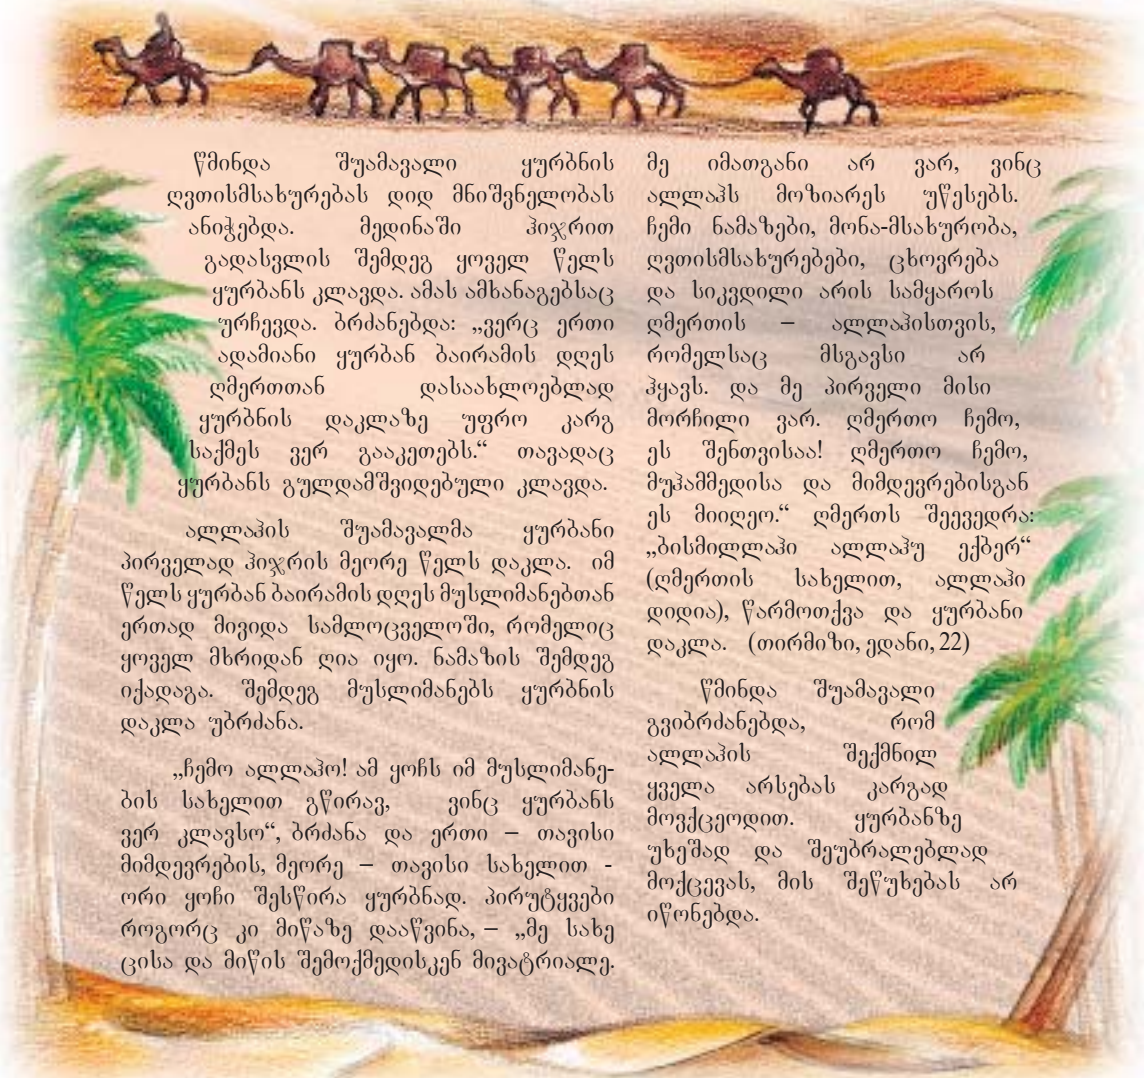 წმინდა შუამავალი ყურბნის
ღვთისმსახურებას დიდ მნიშვნელობას
ანიჭებდა. მედინაში ჰიჯრით
გადასვლის შემდეგ ყოველ წელს
ყურბანს კლავდა. ამას ამხანაგებსაც
ურჩევდა. ბრძანებდა: „ვერც ერთი
ადამიანი ყურბან ბაირამის დღეს
ღმერთთან დასაახლოებლად
ყურბნის დაკლაზე უფრო კარგ
საქმეს ვერ გააკეთებს.“ თავადაც
ყურბანს გულდამშვიდებული კლავდა.
ალლაჰის შუამავალმა ყურბანი
პირველად ჰიჯრის მეორე წელს დაკლა. იმ
წელს ყურბან ბაირამის დღეს მუსლიმანებთან
ერთად მივიდა სამლოცველოში, რომელიც
ყოველ მხრიდან ღია იყო. ნამაზის შემდეგ
იქადაგა. შემდეგ მუსლიმანებს ყურბნის
დაკლა უბრძანა.
„ჩემო ალლაჰო! ამ ყოჩს იმ მუსლიმანე-
ბის სახელით გწირავ, ვინც ყურბანს
ვერ კლავსო“, ბრძანა და ერთი – თავისი
მიმდევრების, მეორე – თავისი სახელით -
ორი ყოჩი შესწირა ყურბნად. პირუტყვები
როგორც კი მიწაზე დააწვინა, – „მე სახე
ცისა და მიწის შემოქმედისკენ მივატრიალე.
მე იმათგანი არ ვარ, ვინც
ალლაჰს მოზიარეს უწესებს.
ჩემი ნამაზები, მონა-მსახურობა,
ღვთისმსახურებები, ცხოვრება
და სიკვდილი არის სამყაროს
ღმერთის – ალლაჰისთვის,
რომელსაც მსგავსი არ
ჰყავს. და მე პირველი მისი
მორჩილი ვარ. ღმერთო ჩემო,
ეს შენთვისაა! ღმერთო ჩემო,
მუჰამმედისა და მიმდევრებისგან
ეს მიიღეო.“ ღმერთს შეევედრა:
„ბისმილლაჰი ალლაჰუ ექბერ“
(ღმერთის სახელით, ალლაჰი
დიდია), წარმოთქვა და ყურბანი
დაკლა. (თირმიზი, ედანი, 22)
წმინდა შუამავალი
გვიბრძანებდა, რომ
ალლაჰის შექმნილ
ყველა არსებას კარგად
მოვქცეოდით. ყურბანზე
უხეშად და შეუბრალებლად
მოქცევას, მის შეწუხებას არ
იწონებდა.